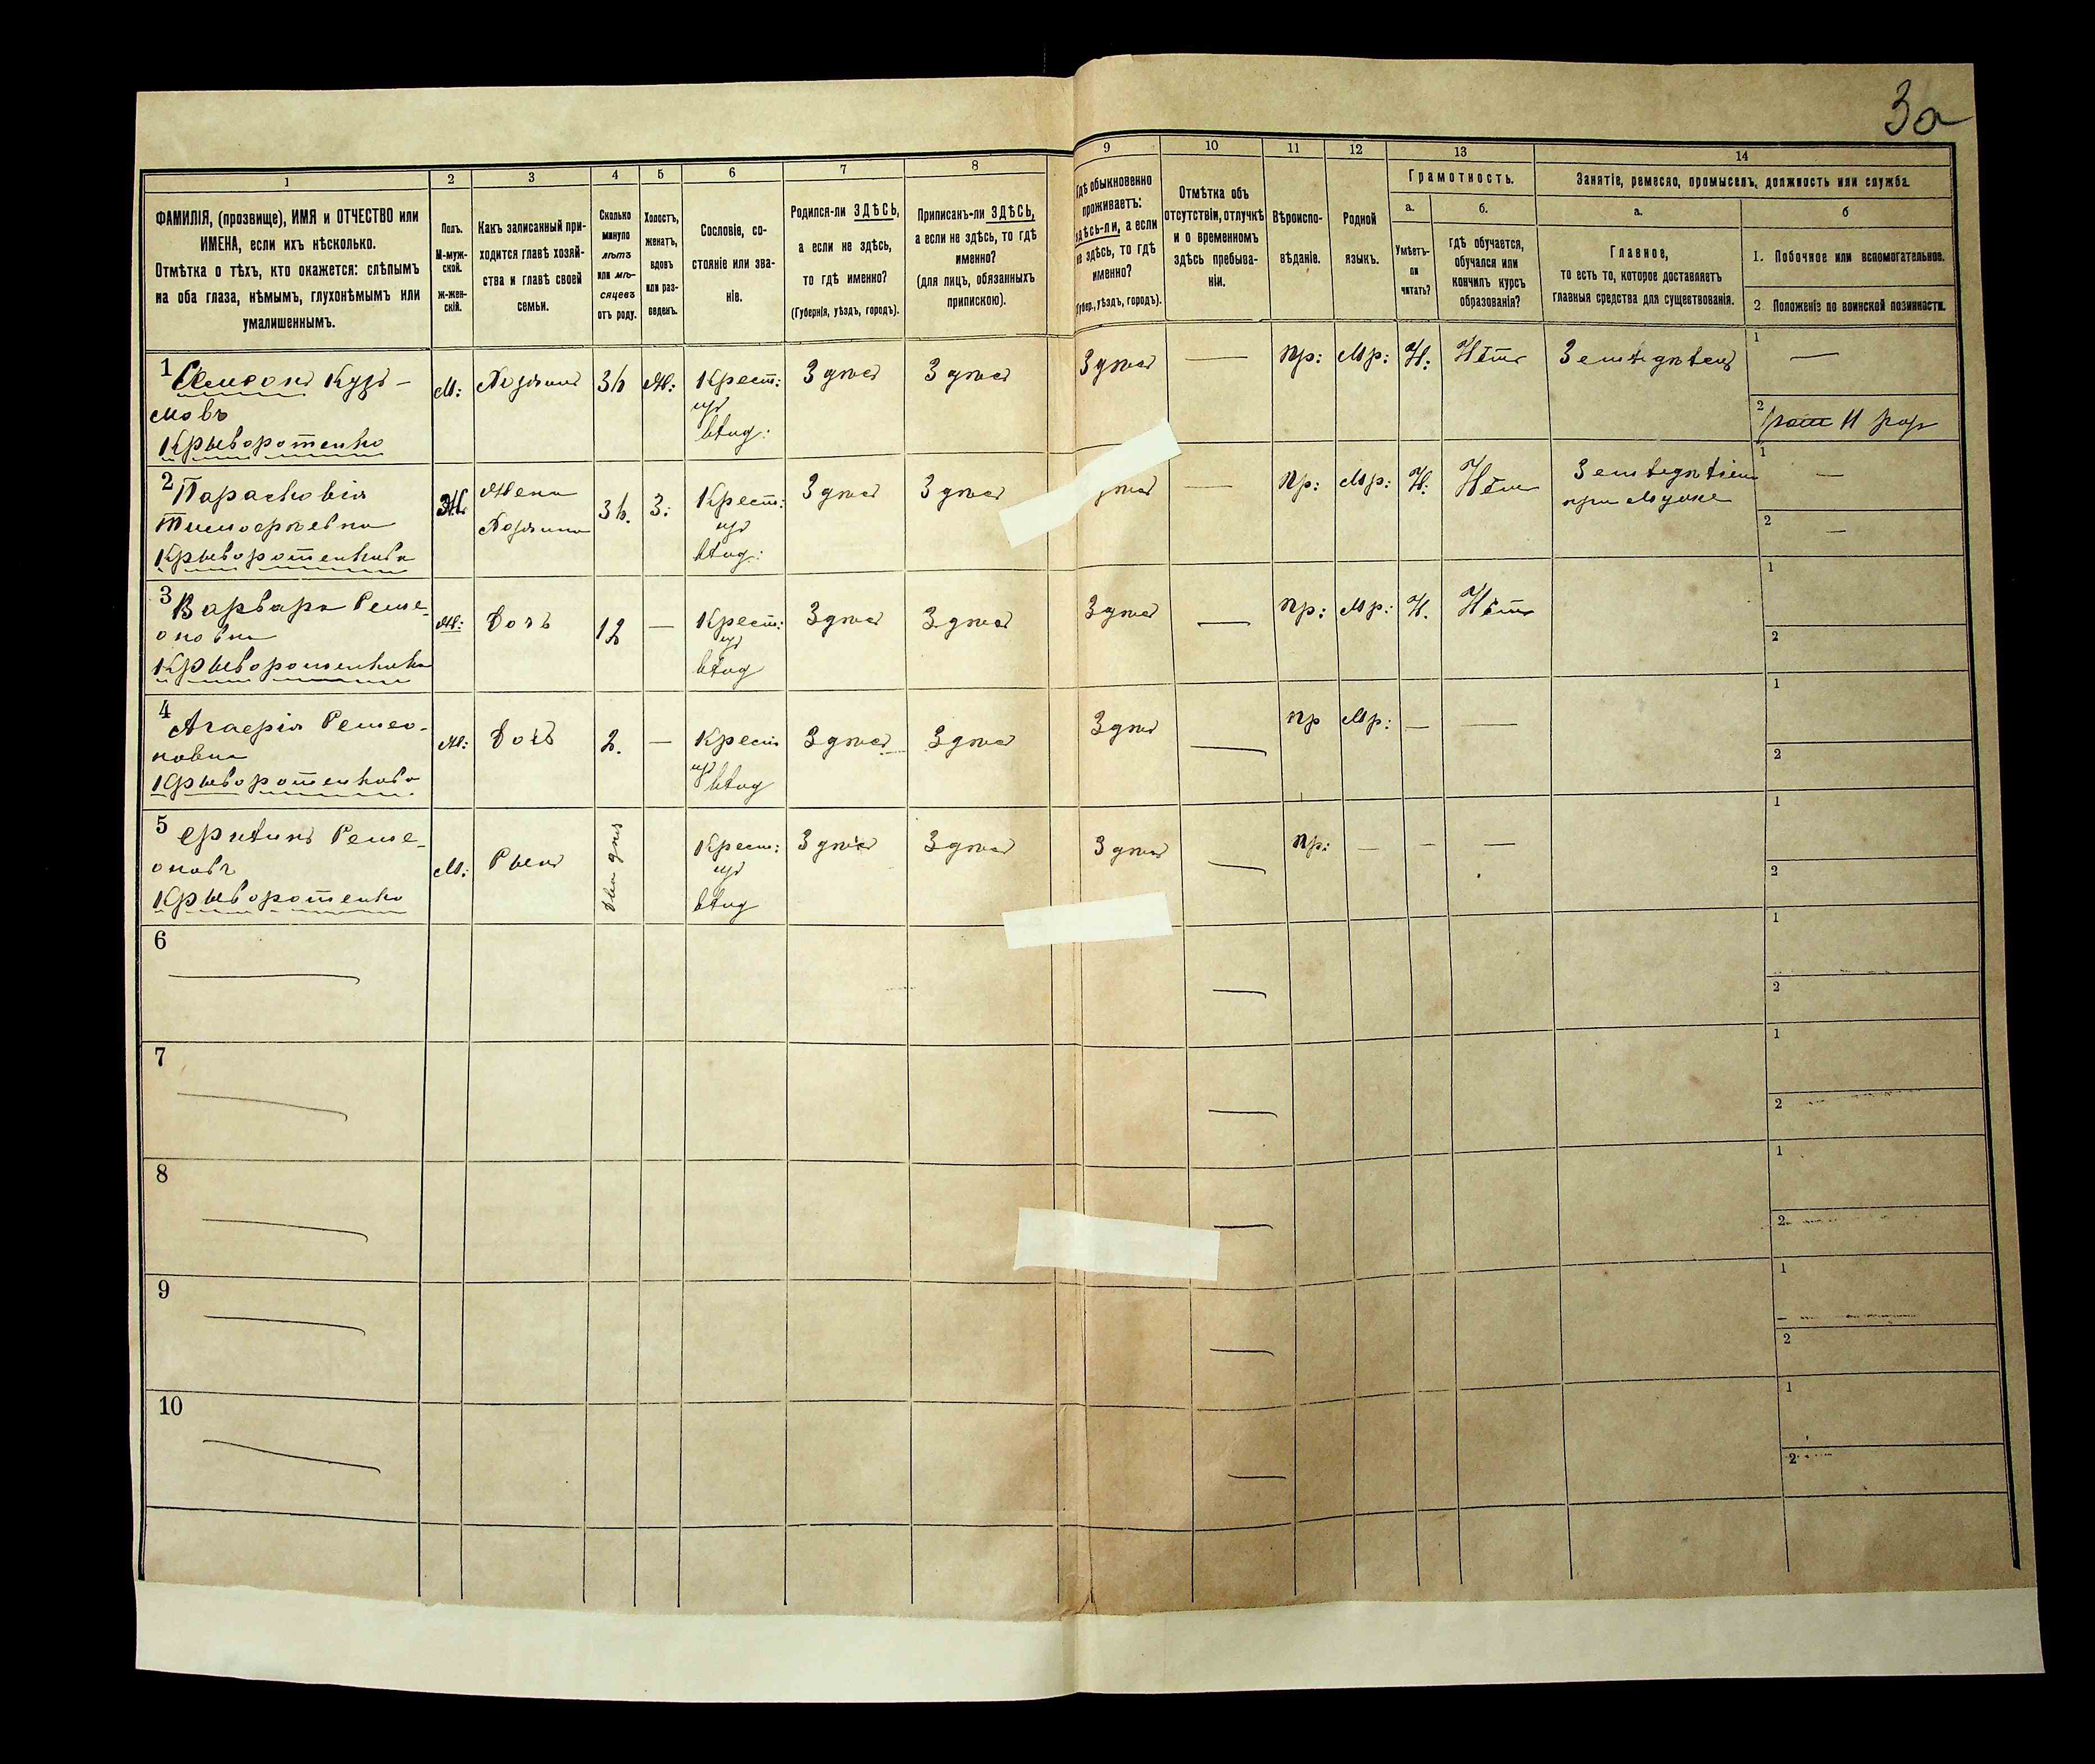 3а
1
2
3
4
5
6
7
8
9
10
11
12
13
14
ФАМИЛІЯ, (прозвище), ИМЯ и ОТЧЕСТВО или
ИМЕНА, если ихъ нѣсколько.
Отмѣтка о тѣхъ, кто окажется: слѣпымъ
на оба глаза, нѣмымъ, глухонѣмымъ или
умалишеннымъ.
Полъ.
М-муж-
ской.
ж-жен-
скій.
Какъ записанный при-
ходится главѣ хозяй-
ства и главѣ своей
семьи.
Сколько
минуло
лѣтъ
или мѣ-
сяцевъ
отъ роду.
Холостъ,
женатъ,
вдовъ
или раз-
веденъ.
Сословіе, со-
стояніе или зва-
ніе.
Родился-ли ЗДѢСЬ,
а если не здѣсь,
то гдѣ именно?
(Губернія, уѣздъ, городъ).
Приписанъ-ли ЗДѢСЬ,
а если не здѣсь, то гдѣ
именно?
(для лицъ, обязанныхъ
припискою).
Гдѣ обыкновенно
проживаетъ:
здѣсь-ли, а если
не здѣсь, то гдѣ
именно?
(Губер., уѣздъ, городъ).
Отмѣтка объ
отсутствіи, отлучкѣ
и о временномъ
здѣсь пребыва-
ніи.
Вѣроиспо-
вѣданіе.
Родной
языкъ.
Грамотность.
а.
Умѣетъ-
ли
читать?
б.
гдѣ обучается,
обучался или
кончилъ курсъ
образованія?
Занятіе, ремесло, промыселъ, должность или служба.
а.
Главное,
то есть то, которое доставляетъ
главныя средства для существованія.
б
1. Побочное или вспомогательное.
2 Положеніе по воинской повинности.
1 Симеонъ Кузь-
мовъ
Крыворотенко
М: Хозяинъ Ж: Крест:
изъ
влад:
Здѣсь Здѣсь Здѣсь — пр: Мр: Н. Нѣтъ Земледѣлецъ
1 —
2 II раз
2 Парасковія
Тимофѣевна
Крыворотенкова
Ж. Жена
Хозяина
З: Крест:
изъ
влад:
Здѣсь Здѣсь — пр: Мр: Н: Нѣтъ Земледѣліе
при Мужѣ
1 —
2 —
3 Варвара Семе-
оновна
Крыворотенкова
Ж: Дочь 12 — Крест:
изъ
влад
Здѣсь Здѣсь Здѣсь — пр: Мр: Н. Нѣтъ
1
2
4 Агафія Семео-
новна
Крыворотенкова
Ж: Дочь 2. — Крест
изъ
влад
Здѣсь Здѣсь Здѣсь — пр Мр: — —
1
2
5 Семе-
оновъ
Крыворотенко
М: Сынъ два дня Крест:
изъ
влад
Здѣсь Здѣсь Здѣсь — пр: — — —
1
2
6 — —
1
2
7 — —
1
2
8 — —
1
2
9 — —
1
2
10 — —
1
2